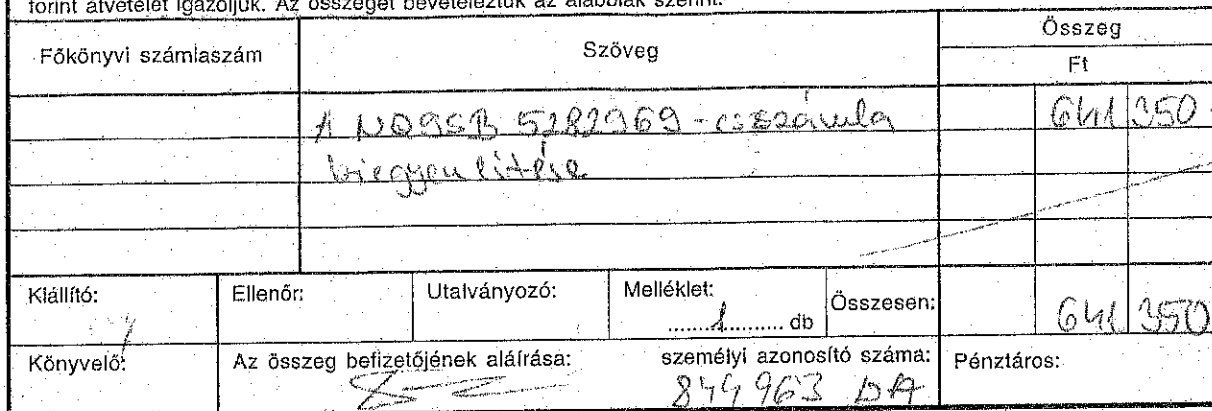 forint átvételét igazoljuk. Az összeget bevételeztük az alábbiak szerint:
Főkönyvi számlaszám Szöveg Összeg
Ft
A NQ9SB 5282969 - es számla 641 350 -
kiegyenlítése
Kiállító: Ellenőr: Utalványozó: Melléklet: Összesen: 641 350
.......1.......... db
Könyvelő: Az összeg befizetőjének aláírása: személyi azonosító száma: Pénztáros:
844963 DA